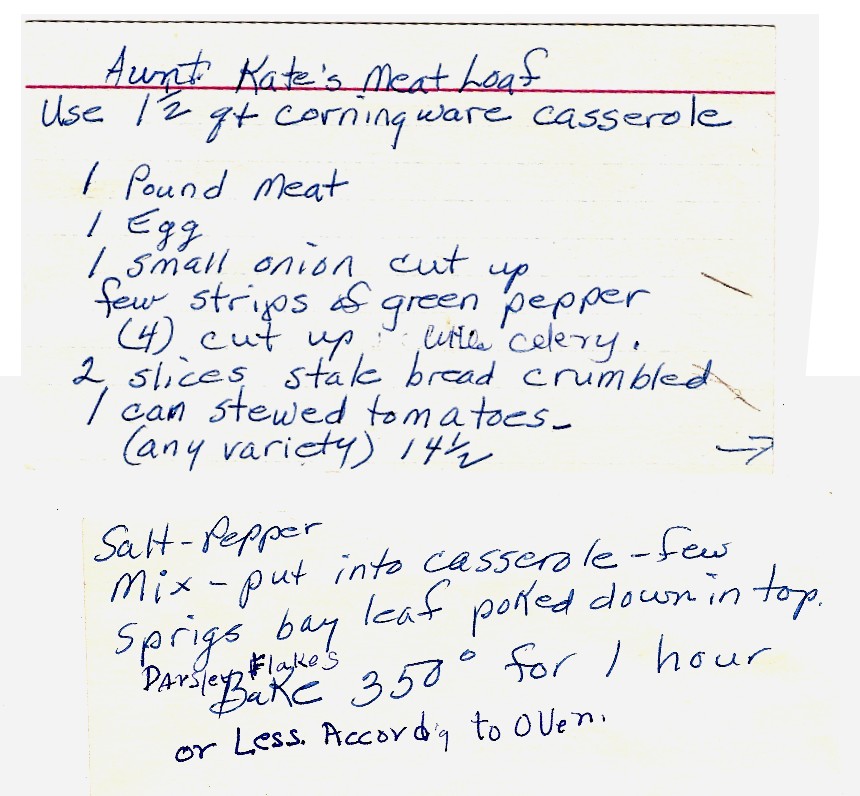 Aunt Kate's Meat Loaf
Use 1½ qt corningware casserole
1 Pound meat
1 Egg
1 small onion cut up
few strips of green pepper
(4) cut up little celery.
2 slices stale bread crumbled
1 can stewed tomatoes-
(any variety) 14½ →
Salt-Pepper
Mix - put into casserole - few
sprigs bay leaf poked down in top.
Parsley Flakes
Bake 350° for 1 hour
or Less. Accord'g to Oven.